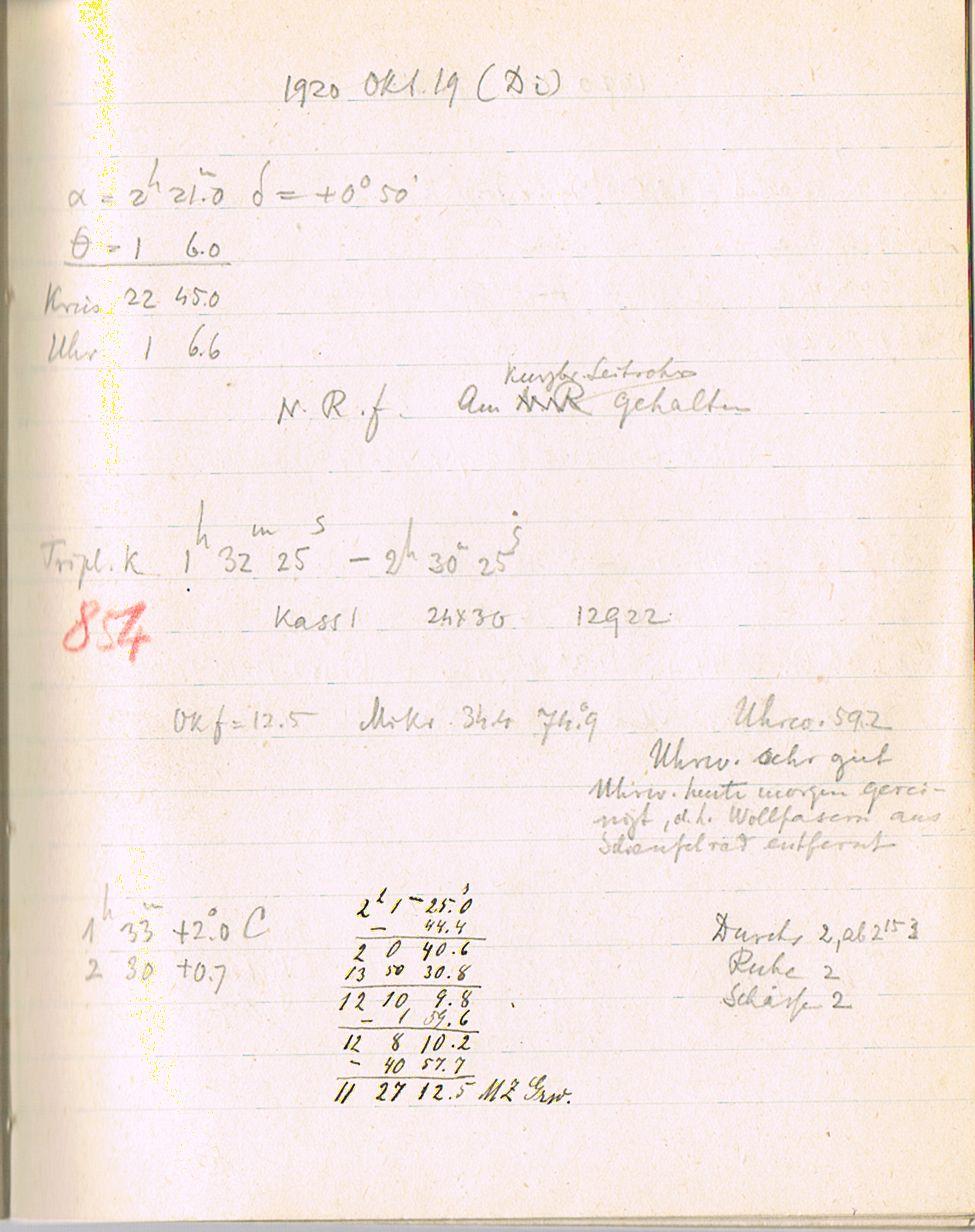 1920 Okt. 19 (Di)
α = 2h 21m.0 δ = +0° 50'
θ = 1 6.0
Kreis 22 45.0
Uhr 1 6.6
kurzbr. Leitrohr
N. R. f. Am gehalten
Tripl. K 1h 32m 25s – 2h 30m 25s
854 Kass 1 24x30 12922
Okf = 12.5 Mikr. 34.4 74°.9 Uhrw. 592
Uhrw. sehr gut
Uhrw. heute morgen gerei-
nigt, d.h. Wollfasern aus
Schaufelrad entfernt
1h 33m +2°.0 C
2 30 +0.7
2h 1m 25s.0
– 44.4
2 0 40.6
13 50 30.8
12 10 9.8
– 1 59.6
12 8 10.2
– 40 57.7
11 27 12.5 MZ Grw.
Durchs 2, ab 2 15 3
Ruhe 2
Schärfe 2